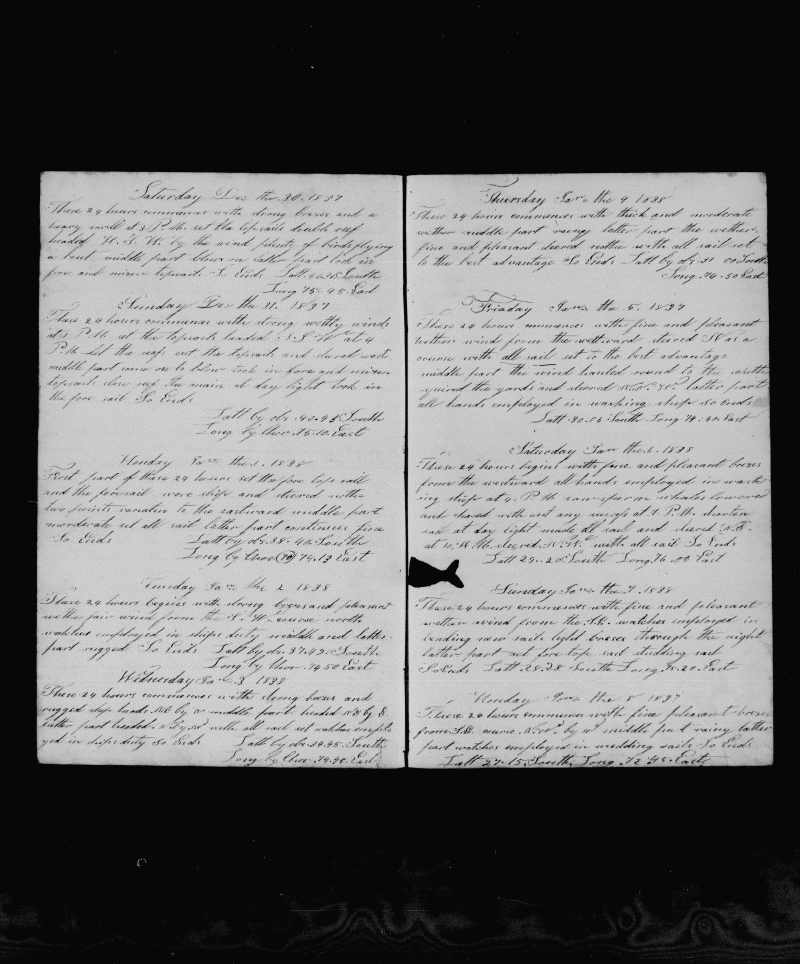 Saturday Dec the 30. 1837
These 24 hours commences with strong brezes and a
heavy swell at 3 P.M. set the topsails double reef
headed W.S.W. by the wind plenty of birds flying
a bout middle part blows on latter part took in
fore and mizen topsails So Ends Latt. 40.15 South
Long 75.45 East
Sunday Dec the 31. 1837
These 24 hours commences with strong westly winds
at 1 P.M. set the topsails headed at 4
P.M. let the reefs out the topsails and
middle part came on to blow took in fore and mizen
topsails close reef the main at day light took in
the fore sail So Ends
Latt by obs. 40.48 South
Long by Chor. 75.10. East
Monday Jan the .1. 1838
First part of these 24 hours set the fore top sail
and the foresail wore ship and steered north
two points variation to the eastward middle part
moordorate set all sail latter part continues fine
So Ends Latt by obs. 38.40. South
Long by Chor 74.13 East
Tuesday Jan the 2 1838
These 24 hours begins with strong brezes and pleasant
with fair wind from the course north
watches employed in ships duty middle and latter
part rugged So Ends Latt by obs. 37.42. South
Long by Chor 74.50 East
Wednesday Jan 3 1838
These 24 hours commences with strong brezes and
rugged ship heads N.E. by N middle part headed N.E by E
latter part headed. N by W with all sail set watches emplo
yed in ships duty So Ends Latt by obs. 34.45. South
Long by Chor. 74.40. East
Thursday Jan the 4 1838
These 24 hours commences with thick and moderate
wether middle part rainy latter part the wether
fine and pleasant steered northe with all sail set
to the best advantage So Ends Latt by obs. 31 00 South
Long. 74.50 East
Friaday Jan the 5. 1837
These 24 hours commences with fine and pleasant
wether wind from the westward steered N as a
course with all sail set to the best advantage
middle part the wind hauled round to the
squared the yards and steered N.N.W. latter part
all hands employed in washing ship So Ends
Latt. 30.06 South Long 74.40. East
Saturday Jan the 6. 1838
These 24 hours begins with fine and pleasant brezes
frome the westward all hands employed in wash
ing ship at 4. P.M. saw sperm whales lowered
and chased with out any sucess at 7 P.M. shorten
sail at day light made all sail and steered N.E.
at 10. A.M. steered. N.W. with all sail So Ends
Latt 29.20 South Long. 76.00 East
Sunday Jan the .7. 1838
These 24 hours commences with fine and pleasant
wether wind from the S.E. watches employed in
bending new sails light brezes through the night
latter part set fore top sail studding sail
So Ends Latt. 28.28 South Long. 75.20 East
Monday Jan the 8 1837
These 24 hours commences with fine pleasant breze
from S.E. course N.W. by W middle part rainy latter
part watches employed in mending sails So Ends
Latt 27.15. South Long. 72 45. East